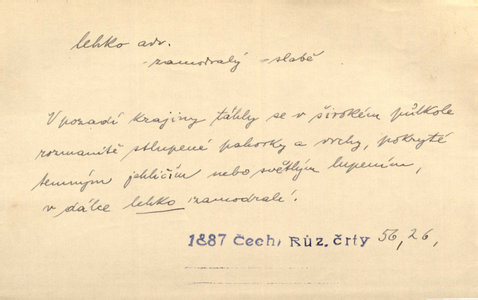 lehko adv.
-zamodralý -slabě
V pozadí krajiny táhly se v širokém půlkole
rozmanitě stlupené pahorky a vrchy, pokryté
temným jehličím nebo světlým lupením,
v dálce lehko zamodralé.
1887 Čech, Růz. črty 56, 26,